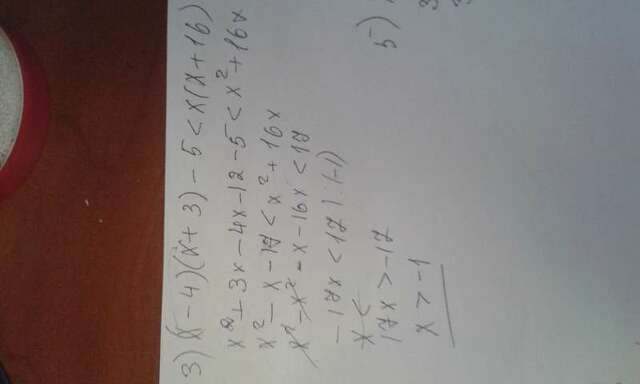 3) (x - 4)(x + 3) - 5 < x(x + 16)
x² + 3x - 4x - 12 - 5 < x² + 16x
x² - x - 17 < x² + 16x
x² - x² - x - 16x < 17
- 17x < 17 | · (-1)
x <
17x > -17
x > -1
5)